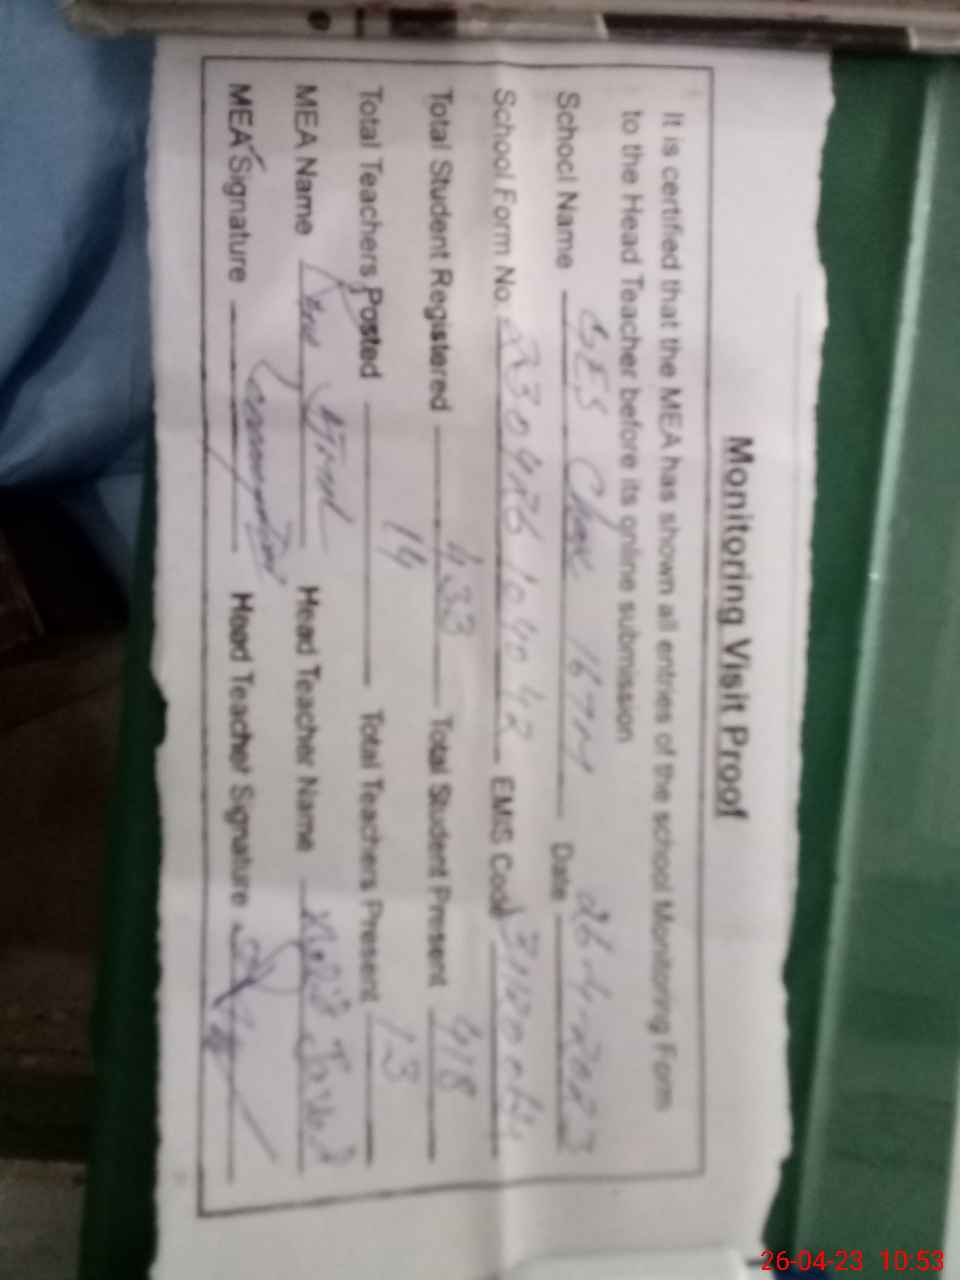 Monitoring Visit Proof
It is certified that the MEA has shown all entries of the school Monitoring Form
to the Head Teacher before its online submission
School Name GES Chak 167M Date 26-4-2023
School Form No. EMIS Code
Total Student Registered 433 Total Student Present 418
Total Teachers Posted 14 Total Teachers Present 13
MEA Name Head Teacher Name
MEA Signature Head Teacher Signature
26-04-23 10:53